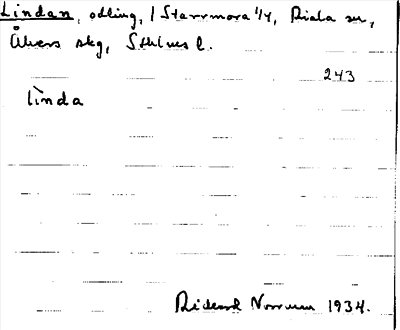 Lindan, odling, / Starrmora 1/4, Riala sn,
Åkers skg, Sthlms l.
243
lìnda
Rickard Norrman 1934.